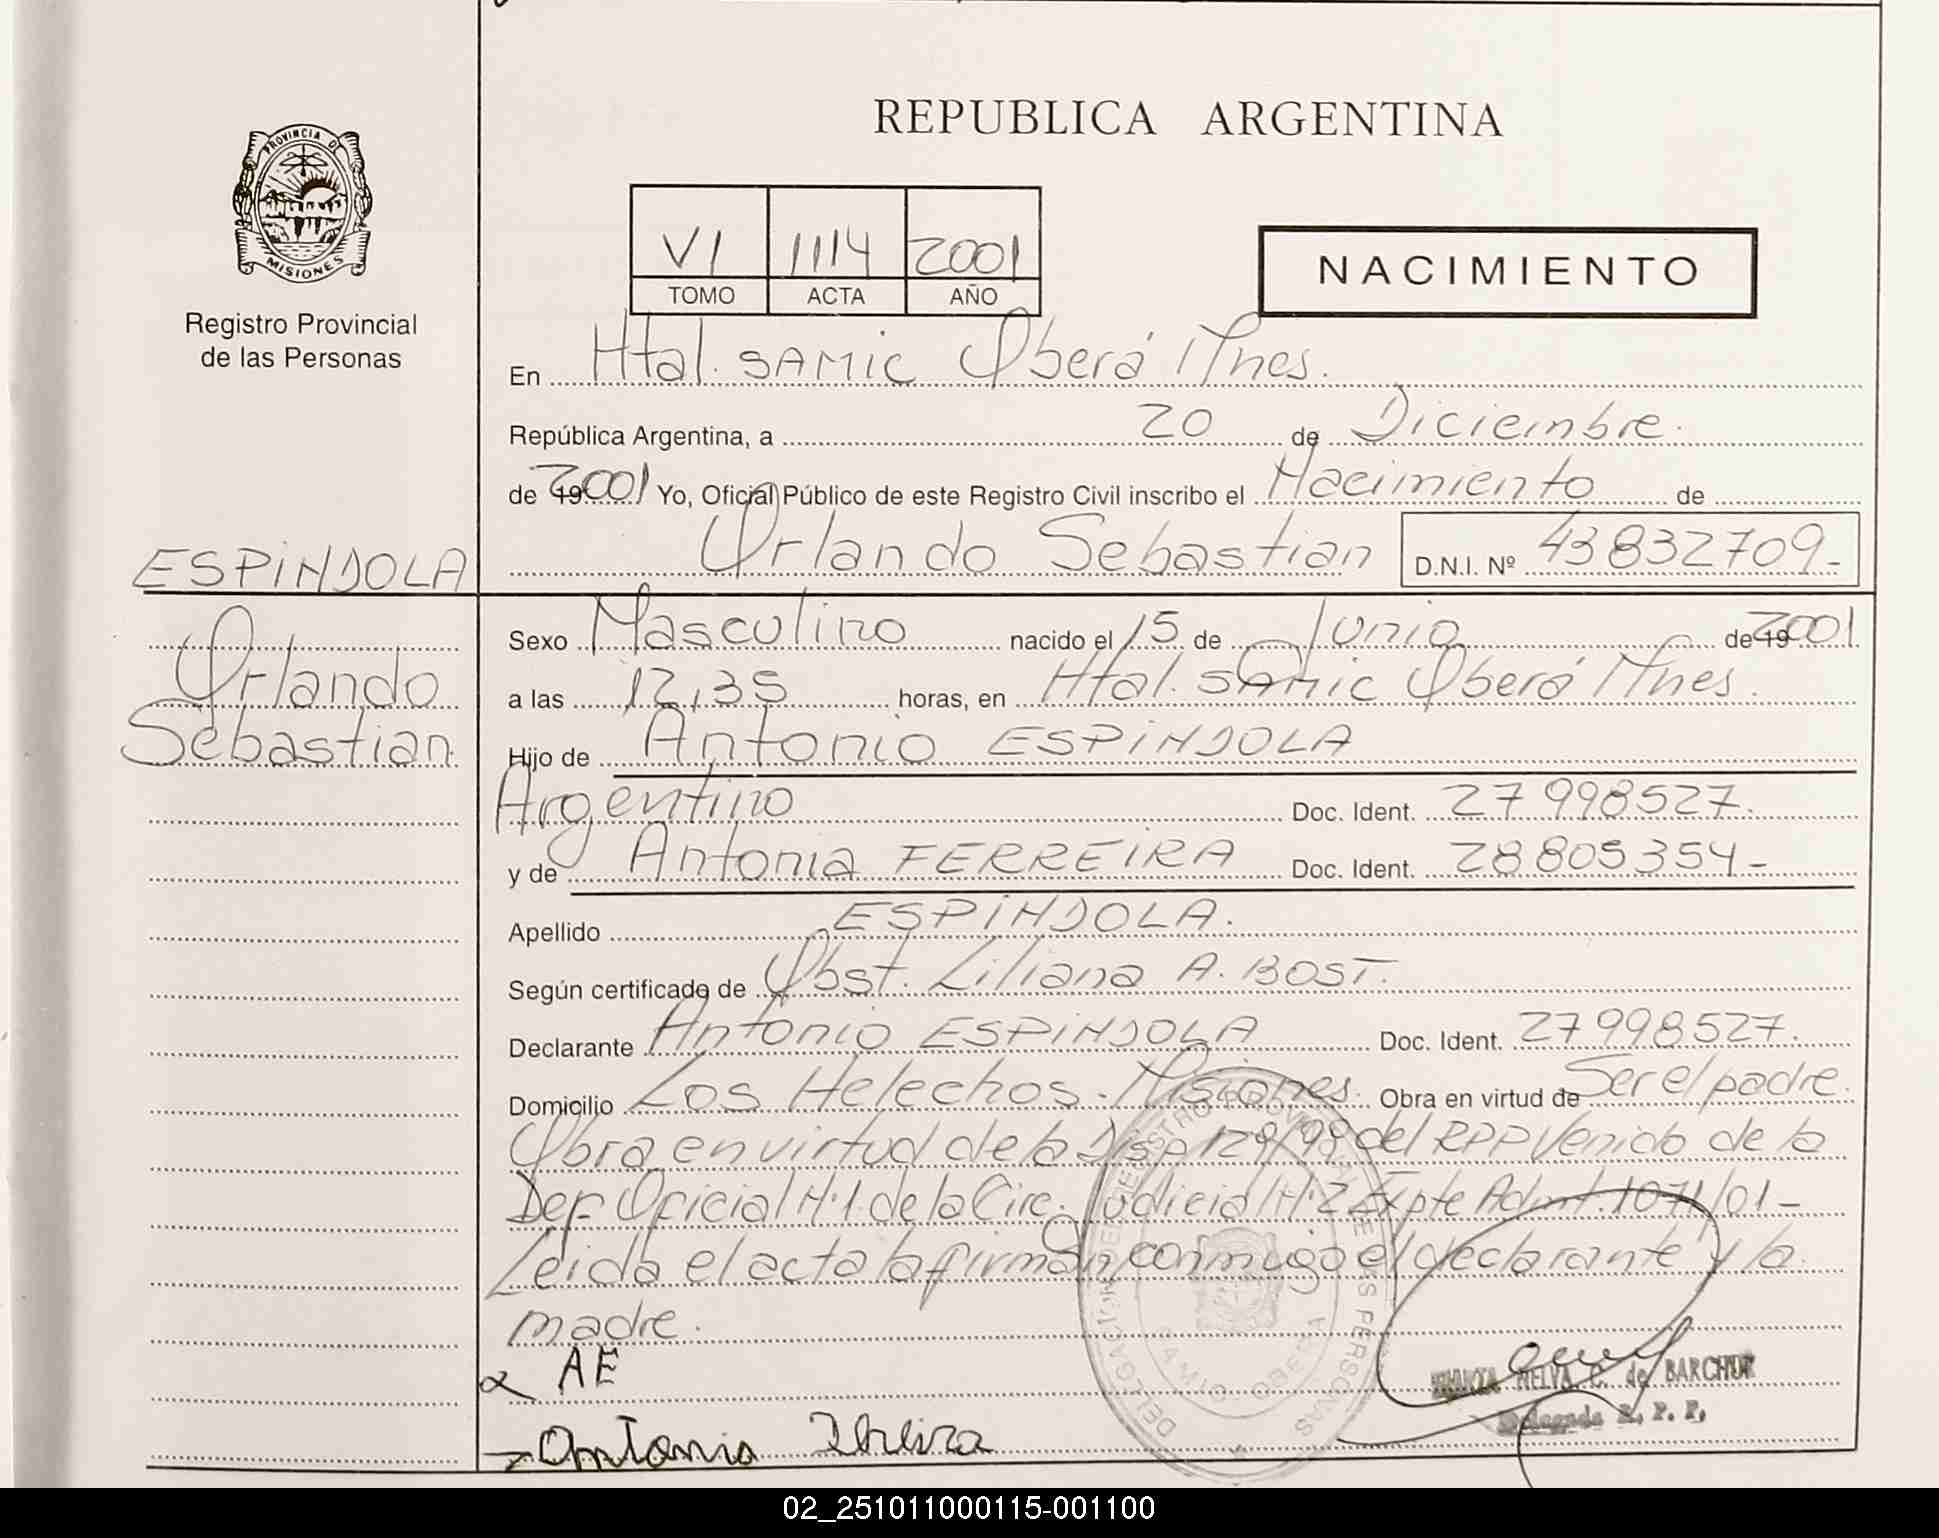 REPUBLICA ARGENTINA
PROVINCIA D
MISIONES
Registro Provincial
de las Personas
VI 1114 2001
TOMO ACTA AÑO
NACIMIENTO
En Htal. SAMIC Oberá Mnes.
República Argentina, a 20 de Diciembre.
de 192001 Yo, Oficial Público de este Registro Civil inscribo el Nacimiento de
Orlando Sebastian D.N.I. Nº 43832709-
ESPINDOLA
Orlando
Sebastian.
Sexo Masculino nacido el 15 de Junio de 192001.
a las 12,35 horas, en Htal. SAMIC Oberá Mnes.
Hijo de Antonio ESPINDOLA
Argentino Doc. Ident. 27998527.
y de Antonia FERREIRA Doc. Ident. 28805354-
Apellido ESPINDOLA.
Según certificado de Obst. Liliana A. BOST.
Declarante Antonio ESPINDOLA Doc. Ident. 27998527.
Domicilio Los Helechos. Misiones. Obra en virtud de Ser el padre.
Obra en virtud de la Disp 129/98 del RPP Venido de la
Def. Oficial N:1. de la Circ. Judicial N:2 Expte Admt. 1071/01-
Leida el acta la firman conmigo el declarante y la
madre.
AE
Antonia
NELVA C. de BARCHUK
Delegada R. P. P.
02_251011000115-001100